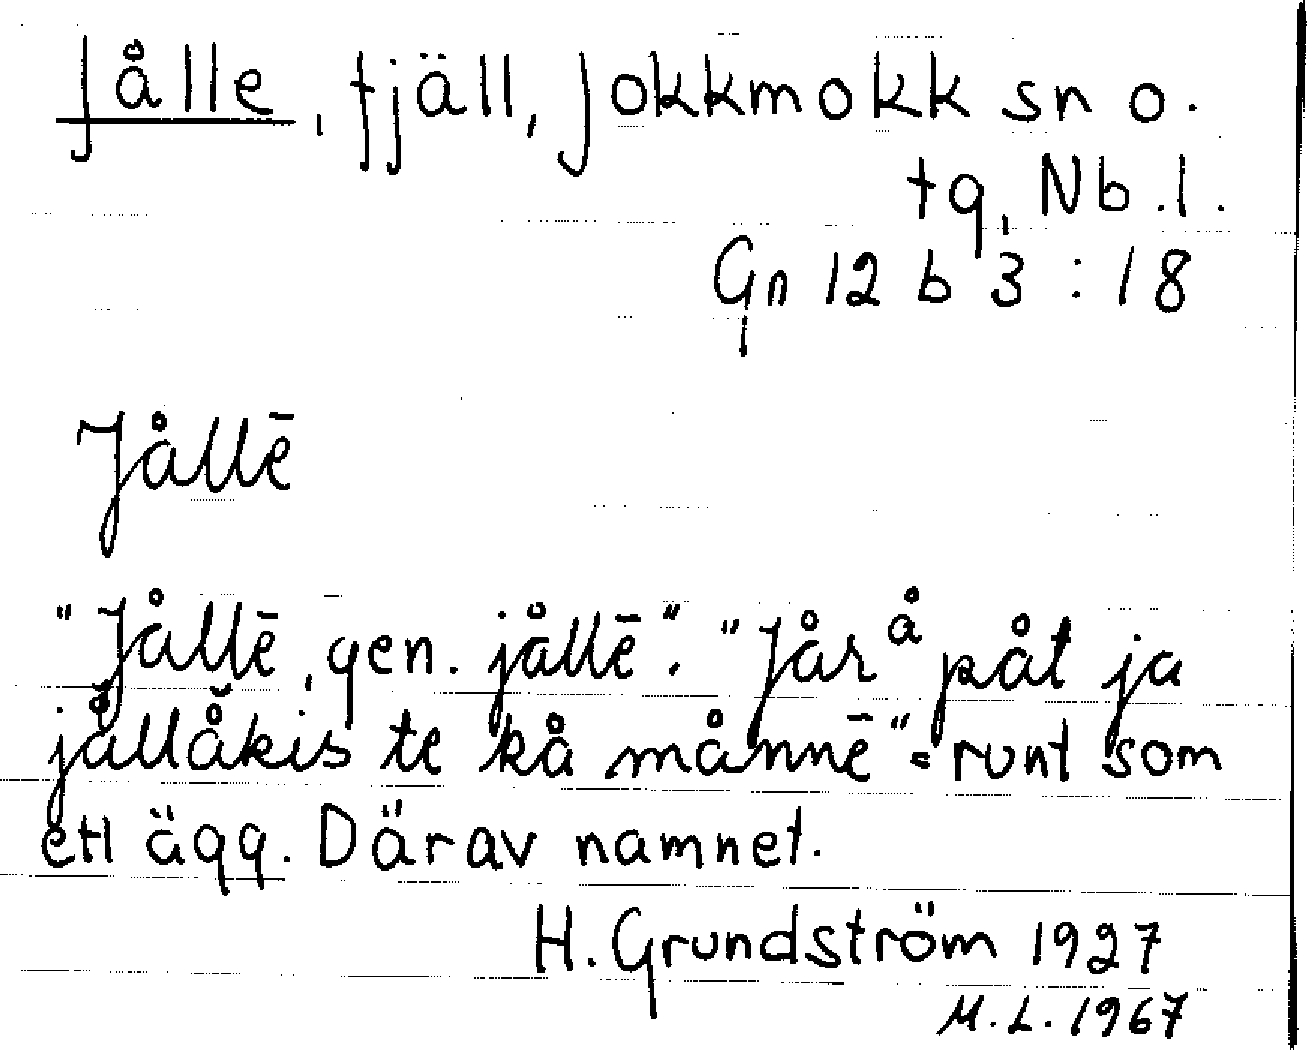 Jålle, fjäll, Jokkmokk sn o.
tg, Nb.l.
Gn 12 b 3 : 18
Jållē
"Jållē, gen. jållē". "Jår å påt ja
jållåkis te kå månnē" = runt som
ett ägg. Därav namnet.
H. Grundström 1927
M.L. 1967